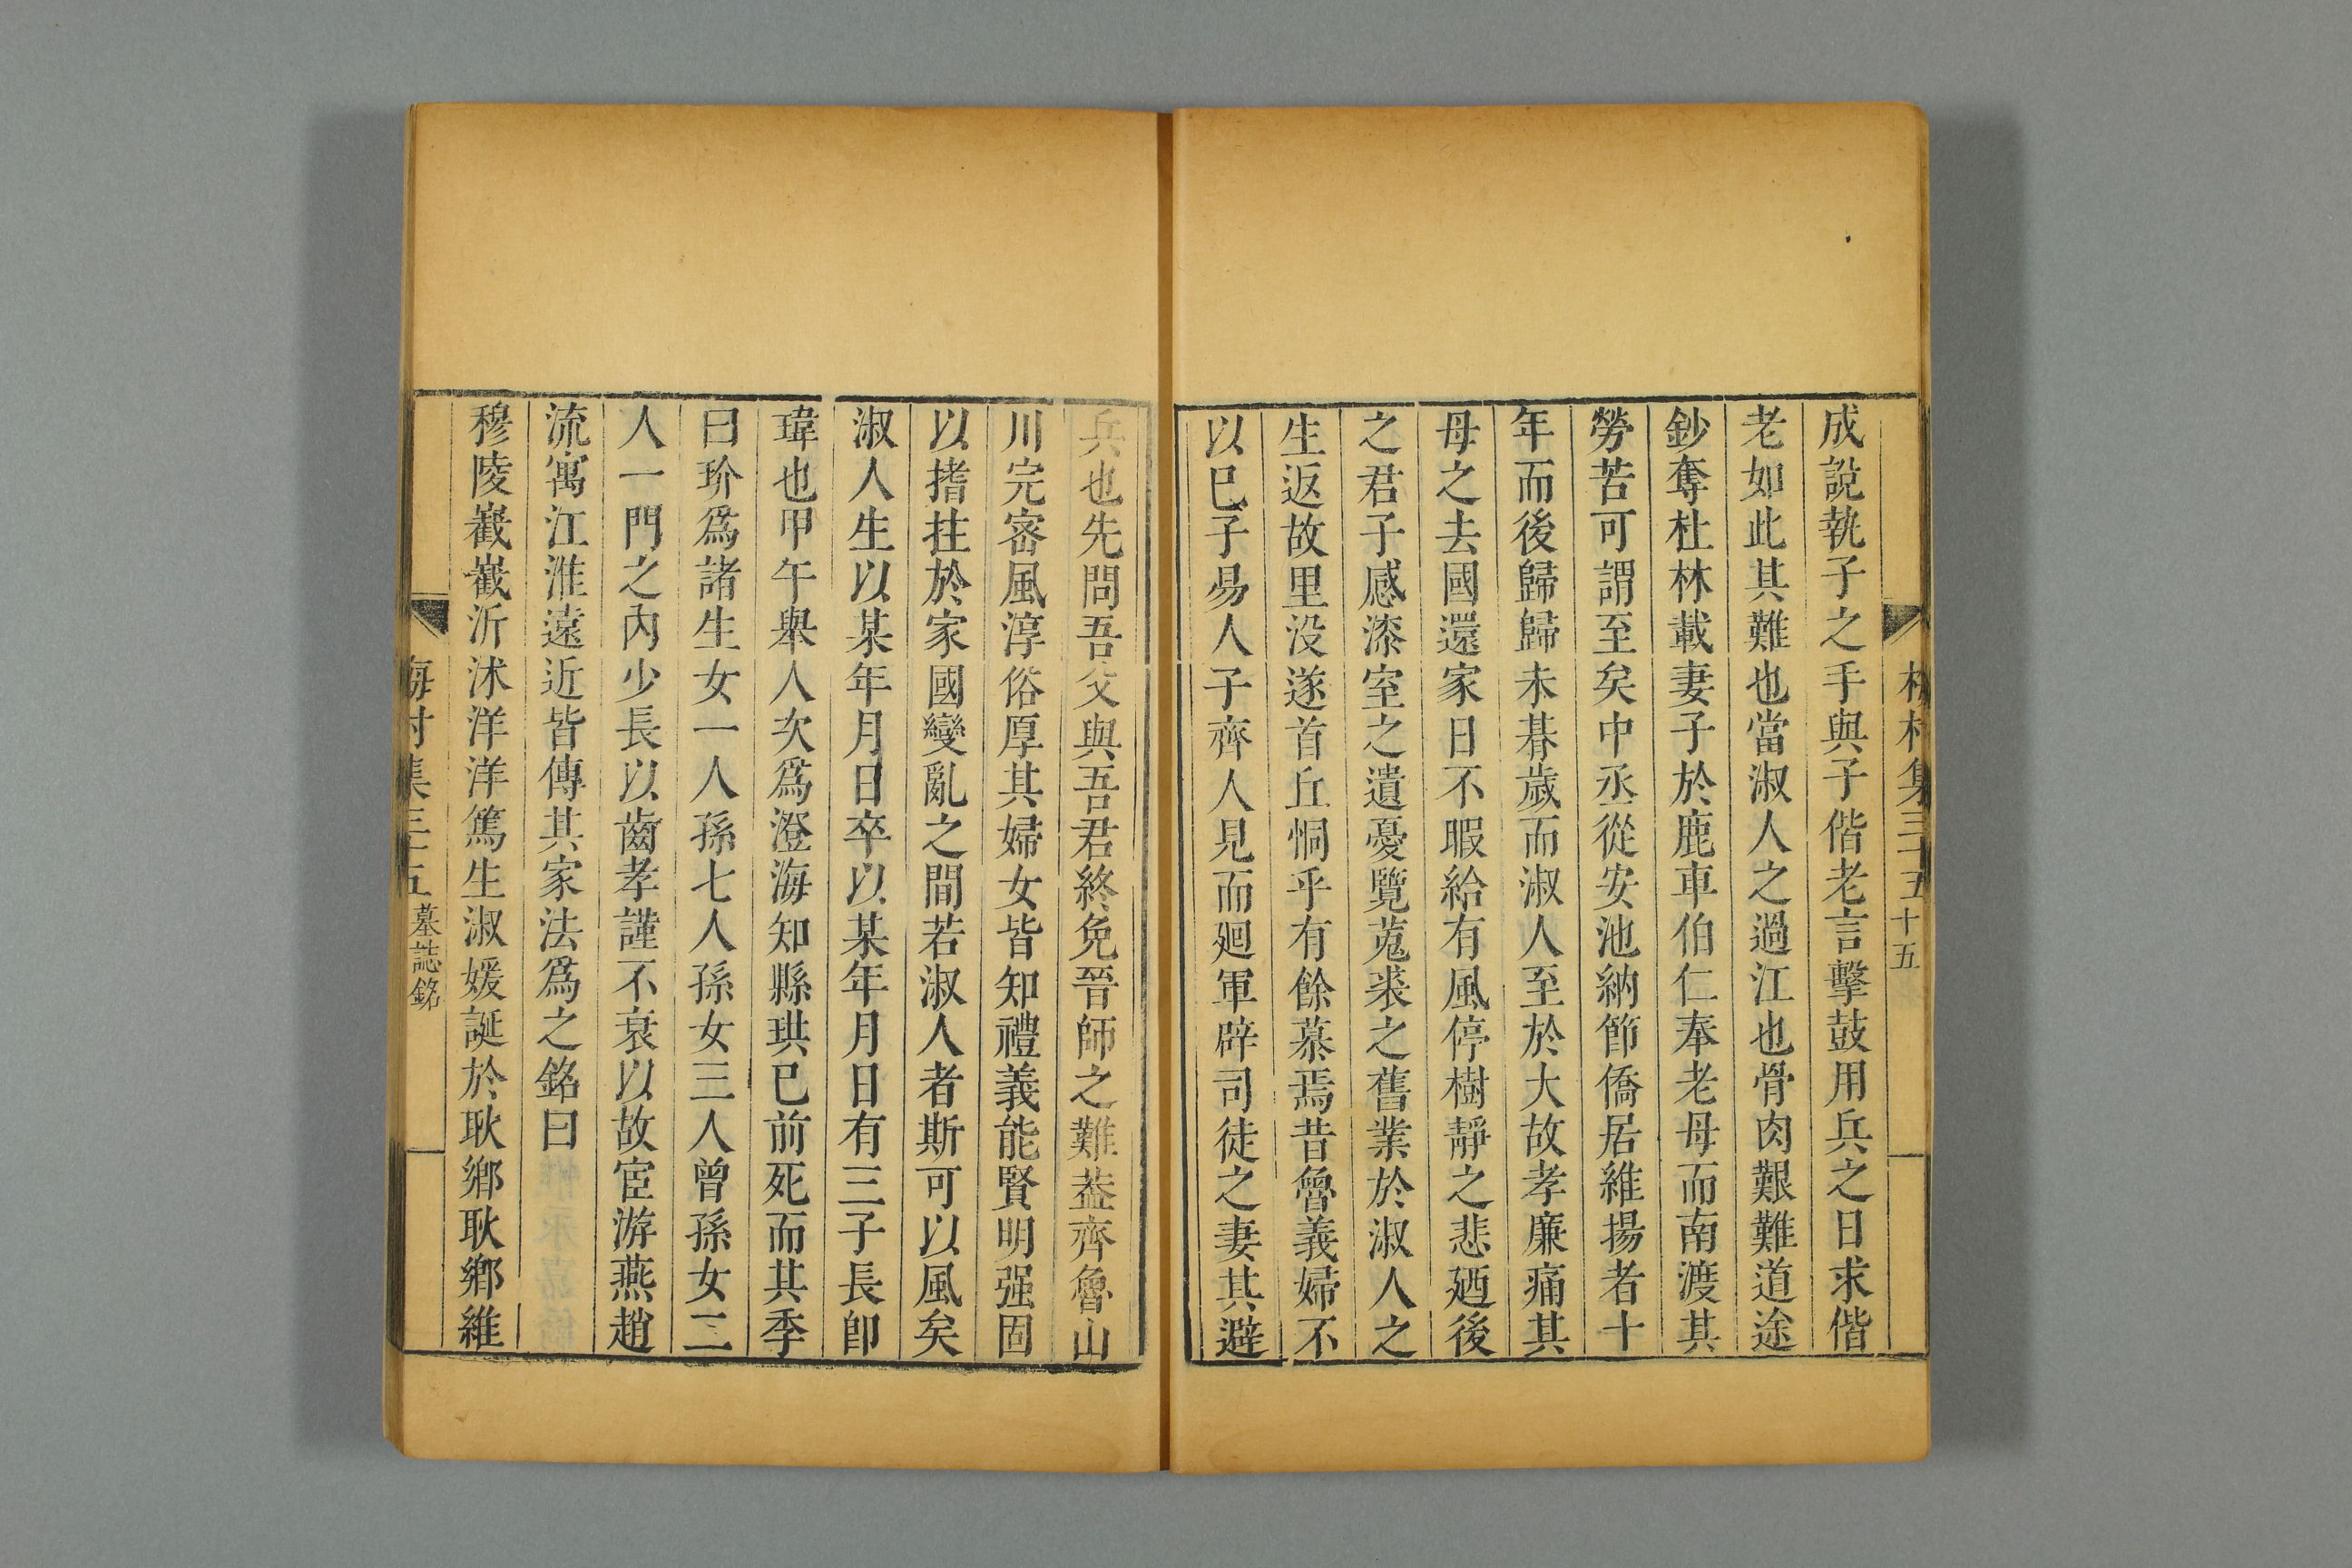 梅村集三十五 十五
成說執子之手與子偕老言擊鼓用兵之日求偕
老如此其難也當淑人之過江也骨肉艱難道途
鈔奪杜林載妻子於鹿車伯仁奉老母而南渡其
勞苦可謂至矣中丞從安池納節僑居維揚者十
年而後歸歸未朞歲而淑人至於大故孝廉痛其
母之去國還家日不暇給有風停樹靜之悲廼後
之君子感漆室之遺憂覽菟裘之舊業於淑人之
生返故里没遂首丘恫乎有餘慕焉昔魯義婦不
以巳子易人子齊人見而廻軍辟司徒之妻其避
兵也先問吾父與吾君終免晉師之難葢齊魯山
川完宻風淳俗厚其婦女皆知禮義能賢明强固
以搘拄於家國變亂之間若淑人者斯可以風矣
淑人生以某年月日卒以某年月日有三子長卽
瑋也甲午舉人次爲澄海知縣珙巳前死而其季
曰玠爲諸生女一人孫七人孫女三人曾孫女二
人一門之內少長以齒孝謹不衰以故宦游燕趙
流寓江淮遠近皆傳其家法爲之銘曰
穆陵嶻嶻沂沭洋洋篤生淑媛誕於耿鄉耿鄉維
梅村集三十五 墓誌銘